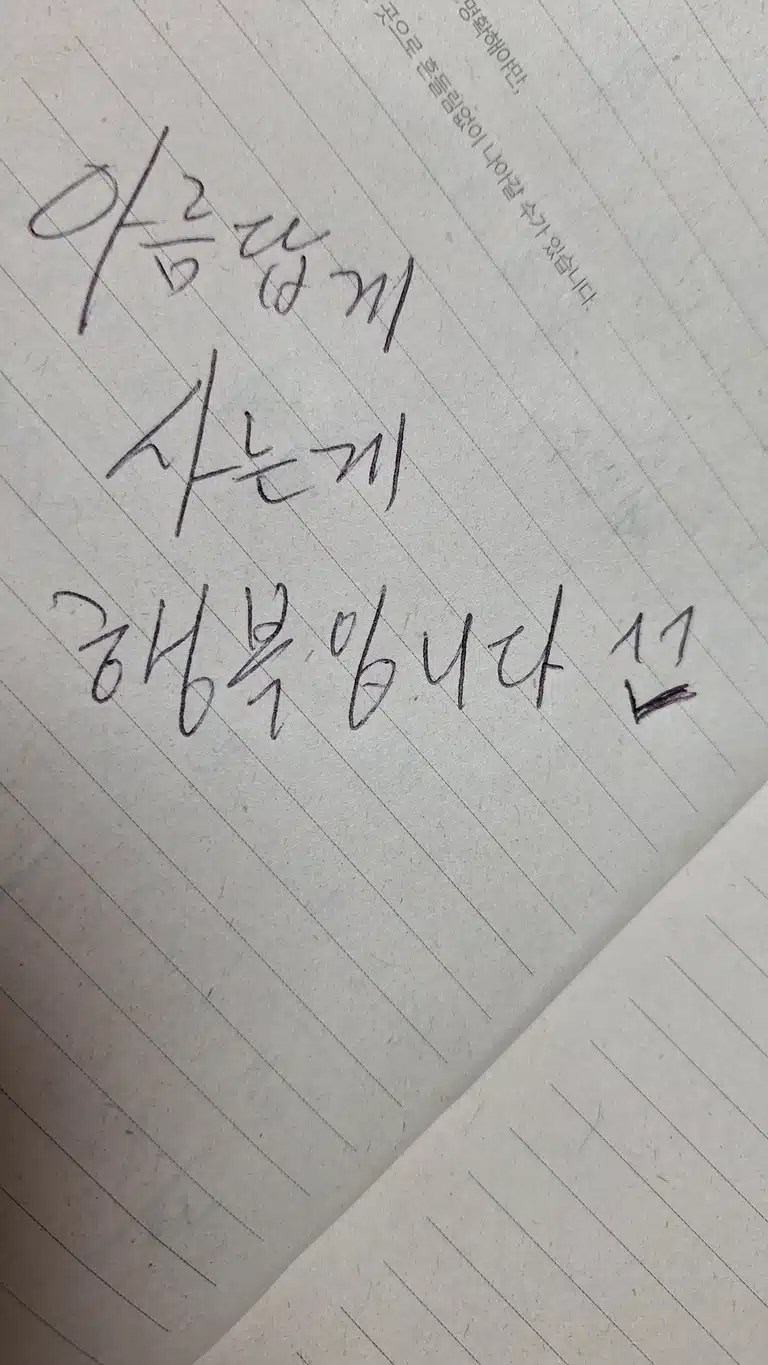 명확해야만,
곳으로 흔들림없이 나아갈 수가 있습니다.
아름답게
사는게
행복입니다 선